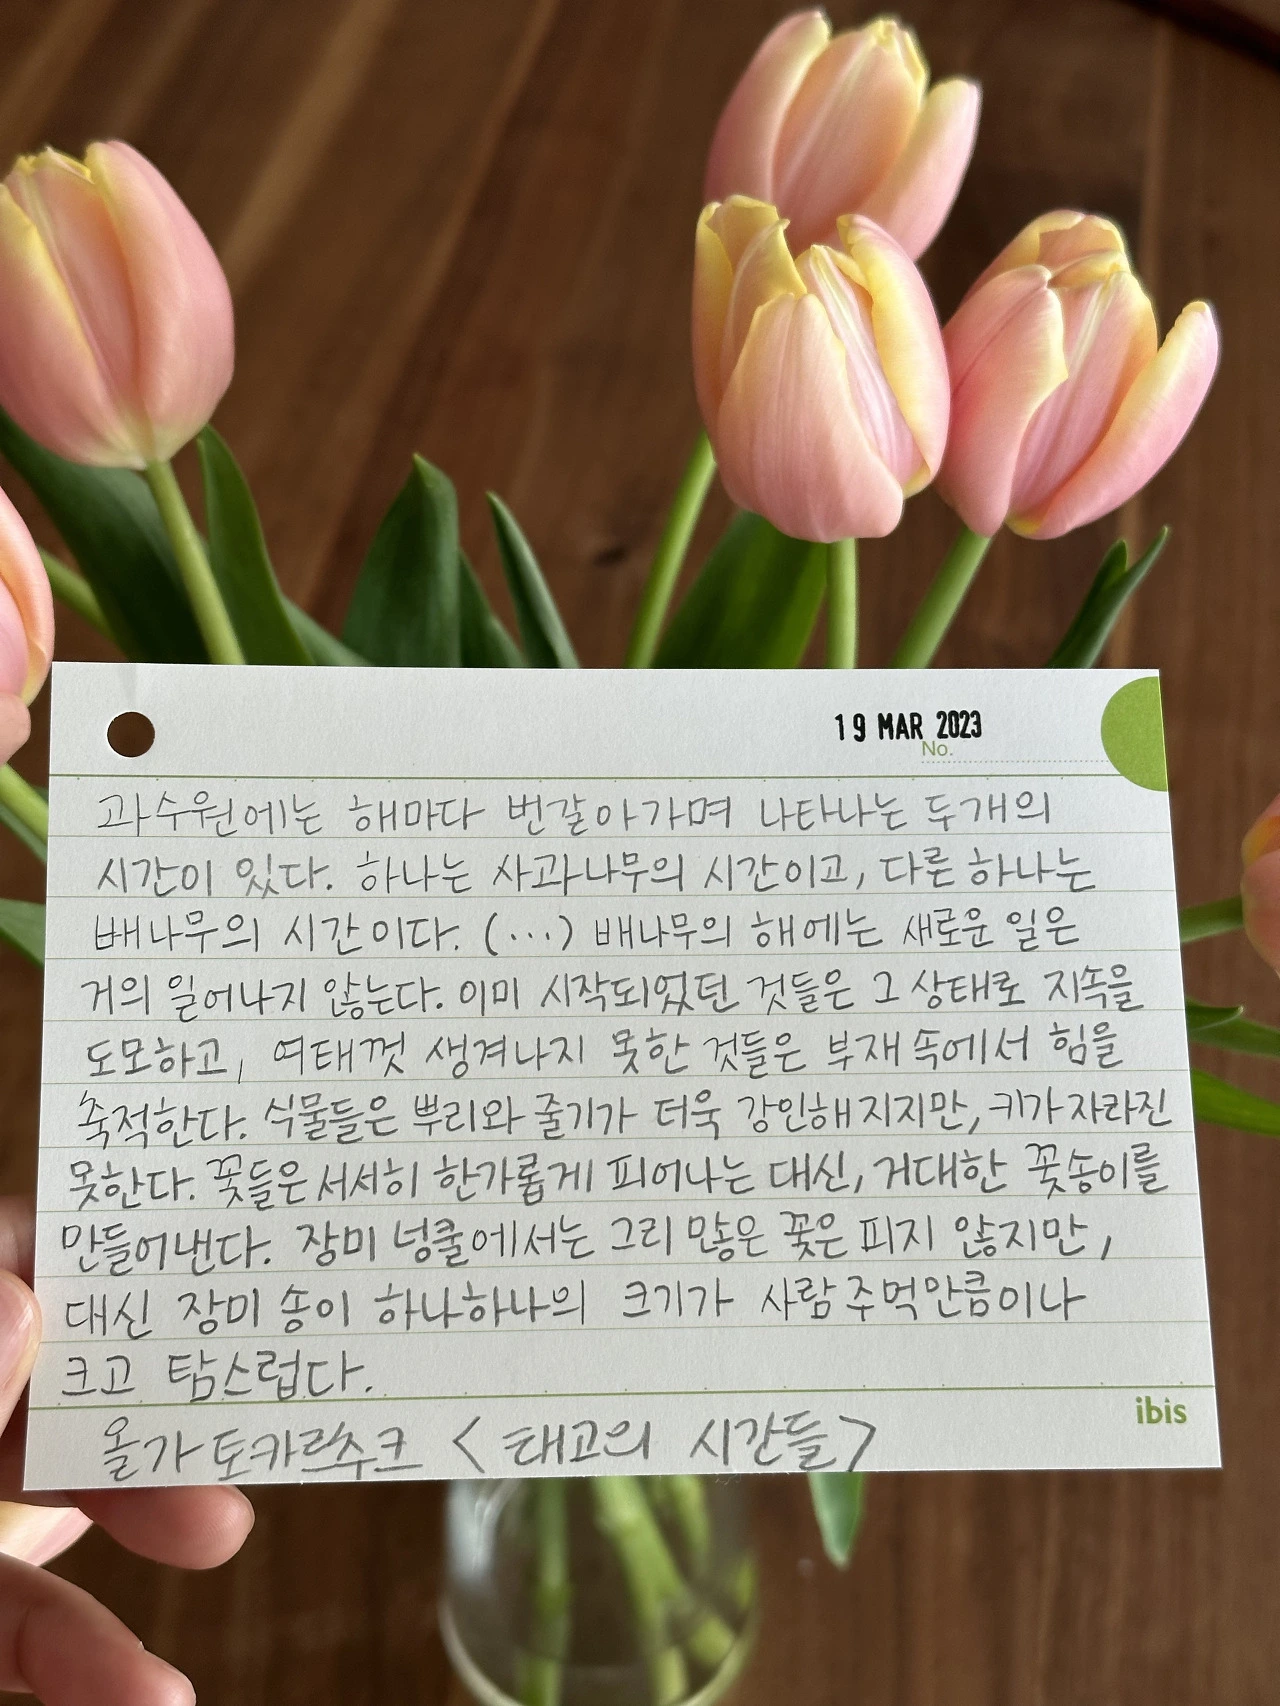 19 MAR 2023
No.
과수원에는 해마다 번갈아가며 나타나는 두개의
시간이 있다. 하나는 사과나무의 시간이고, 다른 하나는
배나무의 시간이다. (...) 배나무의 해에는 새로운 일은
거의 일어나지 않는다. 이미 시작되었던 것들은 그 상태로 지속을
도모하고, 여태껏 생겨나지 못한 것들은 부재 속에서 힘을
축적한다. 식물들은 뿌리와 줄기가 더욱 강인해지지만, 키가 자라진
못한다. 꽃들은 서서히 한가롭게 피어나는 대신, 거대한 꽃송이를
만들어낸다. 장미 넝쿨에서는 그리 많은 꽃은 피지 않지만,
대신 장미 송이 하나하나의 크기가 사람 주먹만큼이나
크고 탐스럽다.
ibis
올가 토카르추크 <태고의 시간들>